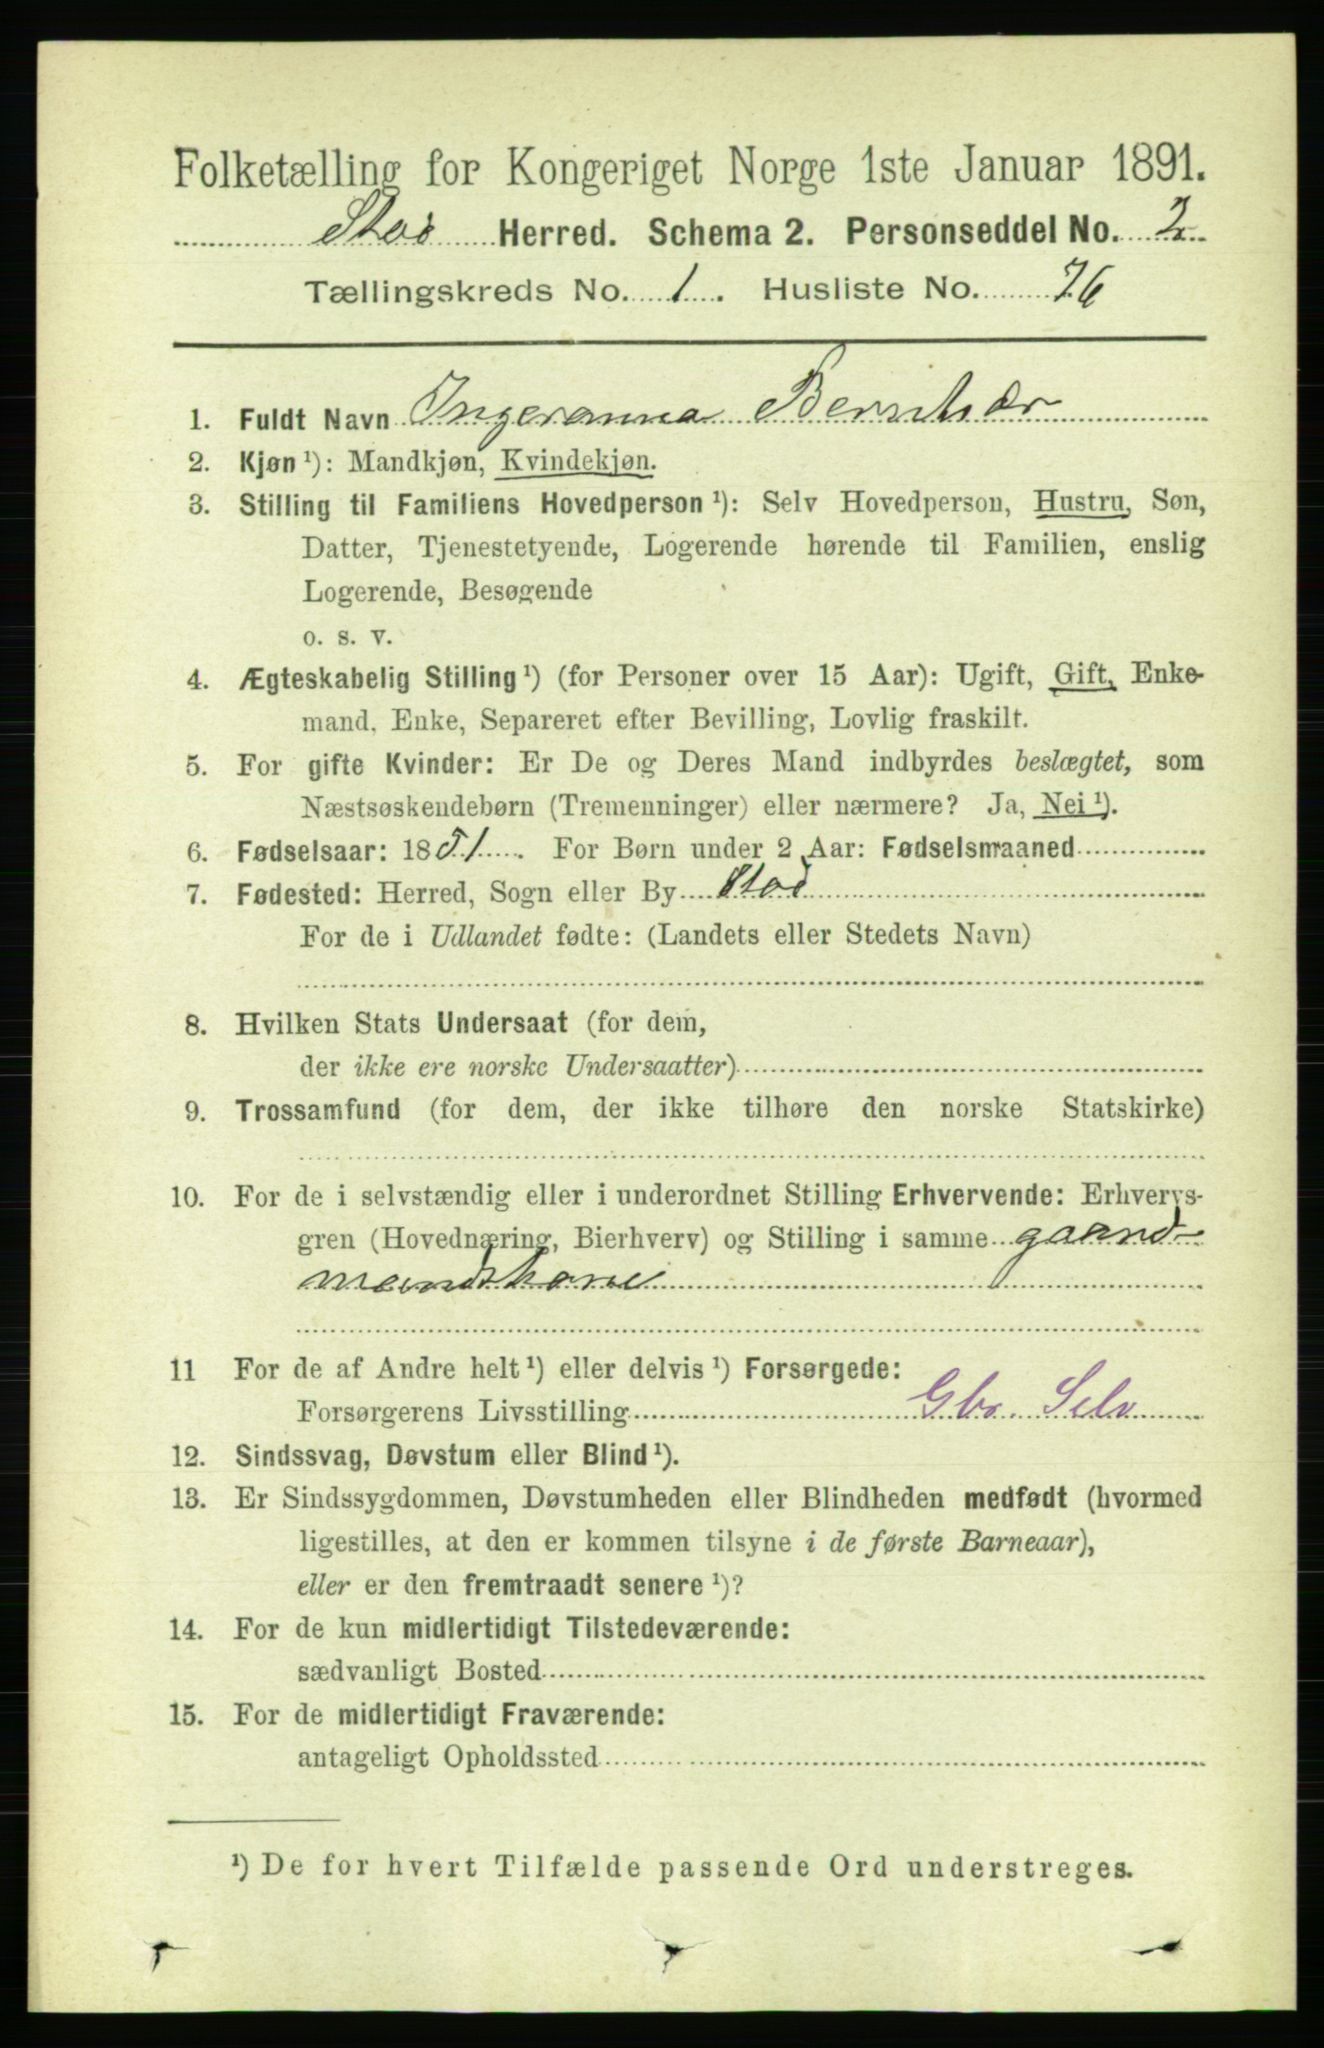 Folketælling for Kongeriget Norge 1ste Januar 1891.
Stod Herred. Schema 2. Personseddel No. 2
Tællingskreds No. 1. Husliste No. 76
1. Fuldt Navn Ingeranna
2. Kjøn ¹): Mandkjøn, Kvindekjøn.
3. Stilling til Familiens Hovedperson ¹): Selv Hovedperson, Hustru, Søn,
Datter, Tjenestetyende, Logerende hørende til Familien, enslig
Logerende, Besøgende
o. s. v.
4. Ægteskabelig Stilling ¹) (for Personer over 15 Aar): Ugift, Gift, Enke-
mand, Enke, Separeret efter Bevilling, Lovlig fraskilt.
5. For gifte Kvinder: Er De og Deres Mand indbyrdes beslægtet, som
Næstsøskendebørn (Tremenninger) eller nærmere? Ja, Nei ¹).
6. Fødselsaar: 1851. For Børn under 2 Aar: Fødselsmaaned
7. Fødested: Herred, Sogn eller By Stod
For de i Udlandet fødte: (Landets eller Stedets Navn)
8. Hvilken Stats Undersaat (for dem,
der ikke ere norske Undersaatter)
9. Trossamfund (for dem, der ikke tilhøre den norske Statskirke)
10. For de i selvstændig eller i underordnet Stilling Erhvervende: Erhvervs-
gren (Hovednæring, Bierhverv) og Stilling i samme gaard-
mandskone
11 For de af Andre helt ¹) eller delvis ¹) Forsørgede:
Forsørgerens Livsstilling Gbr. Selv
12. Sindssvag, Døvstum eller Blind ¹).
13. Er Sindssygdommen, Døvstumheden eller Blindheden medfødt (hvormed
ligestilles, at den er kommen tilsyne i de første Barneaar),
eller er den fremtraadt senere ¹)?
14. For de kun midlertidigt Tilstedeværende:
sædvanligt Bosted
15. For de midlertidigt Fraværende:
antageligt Opholdssted
¹) De for hvert Tilfælde passende Ord understreges.